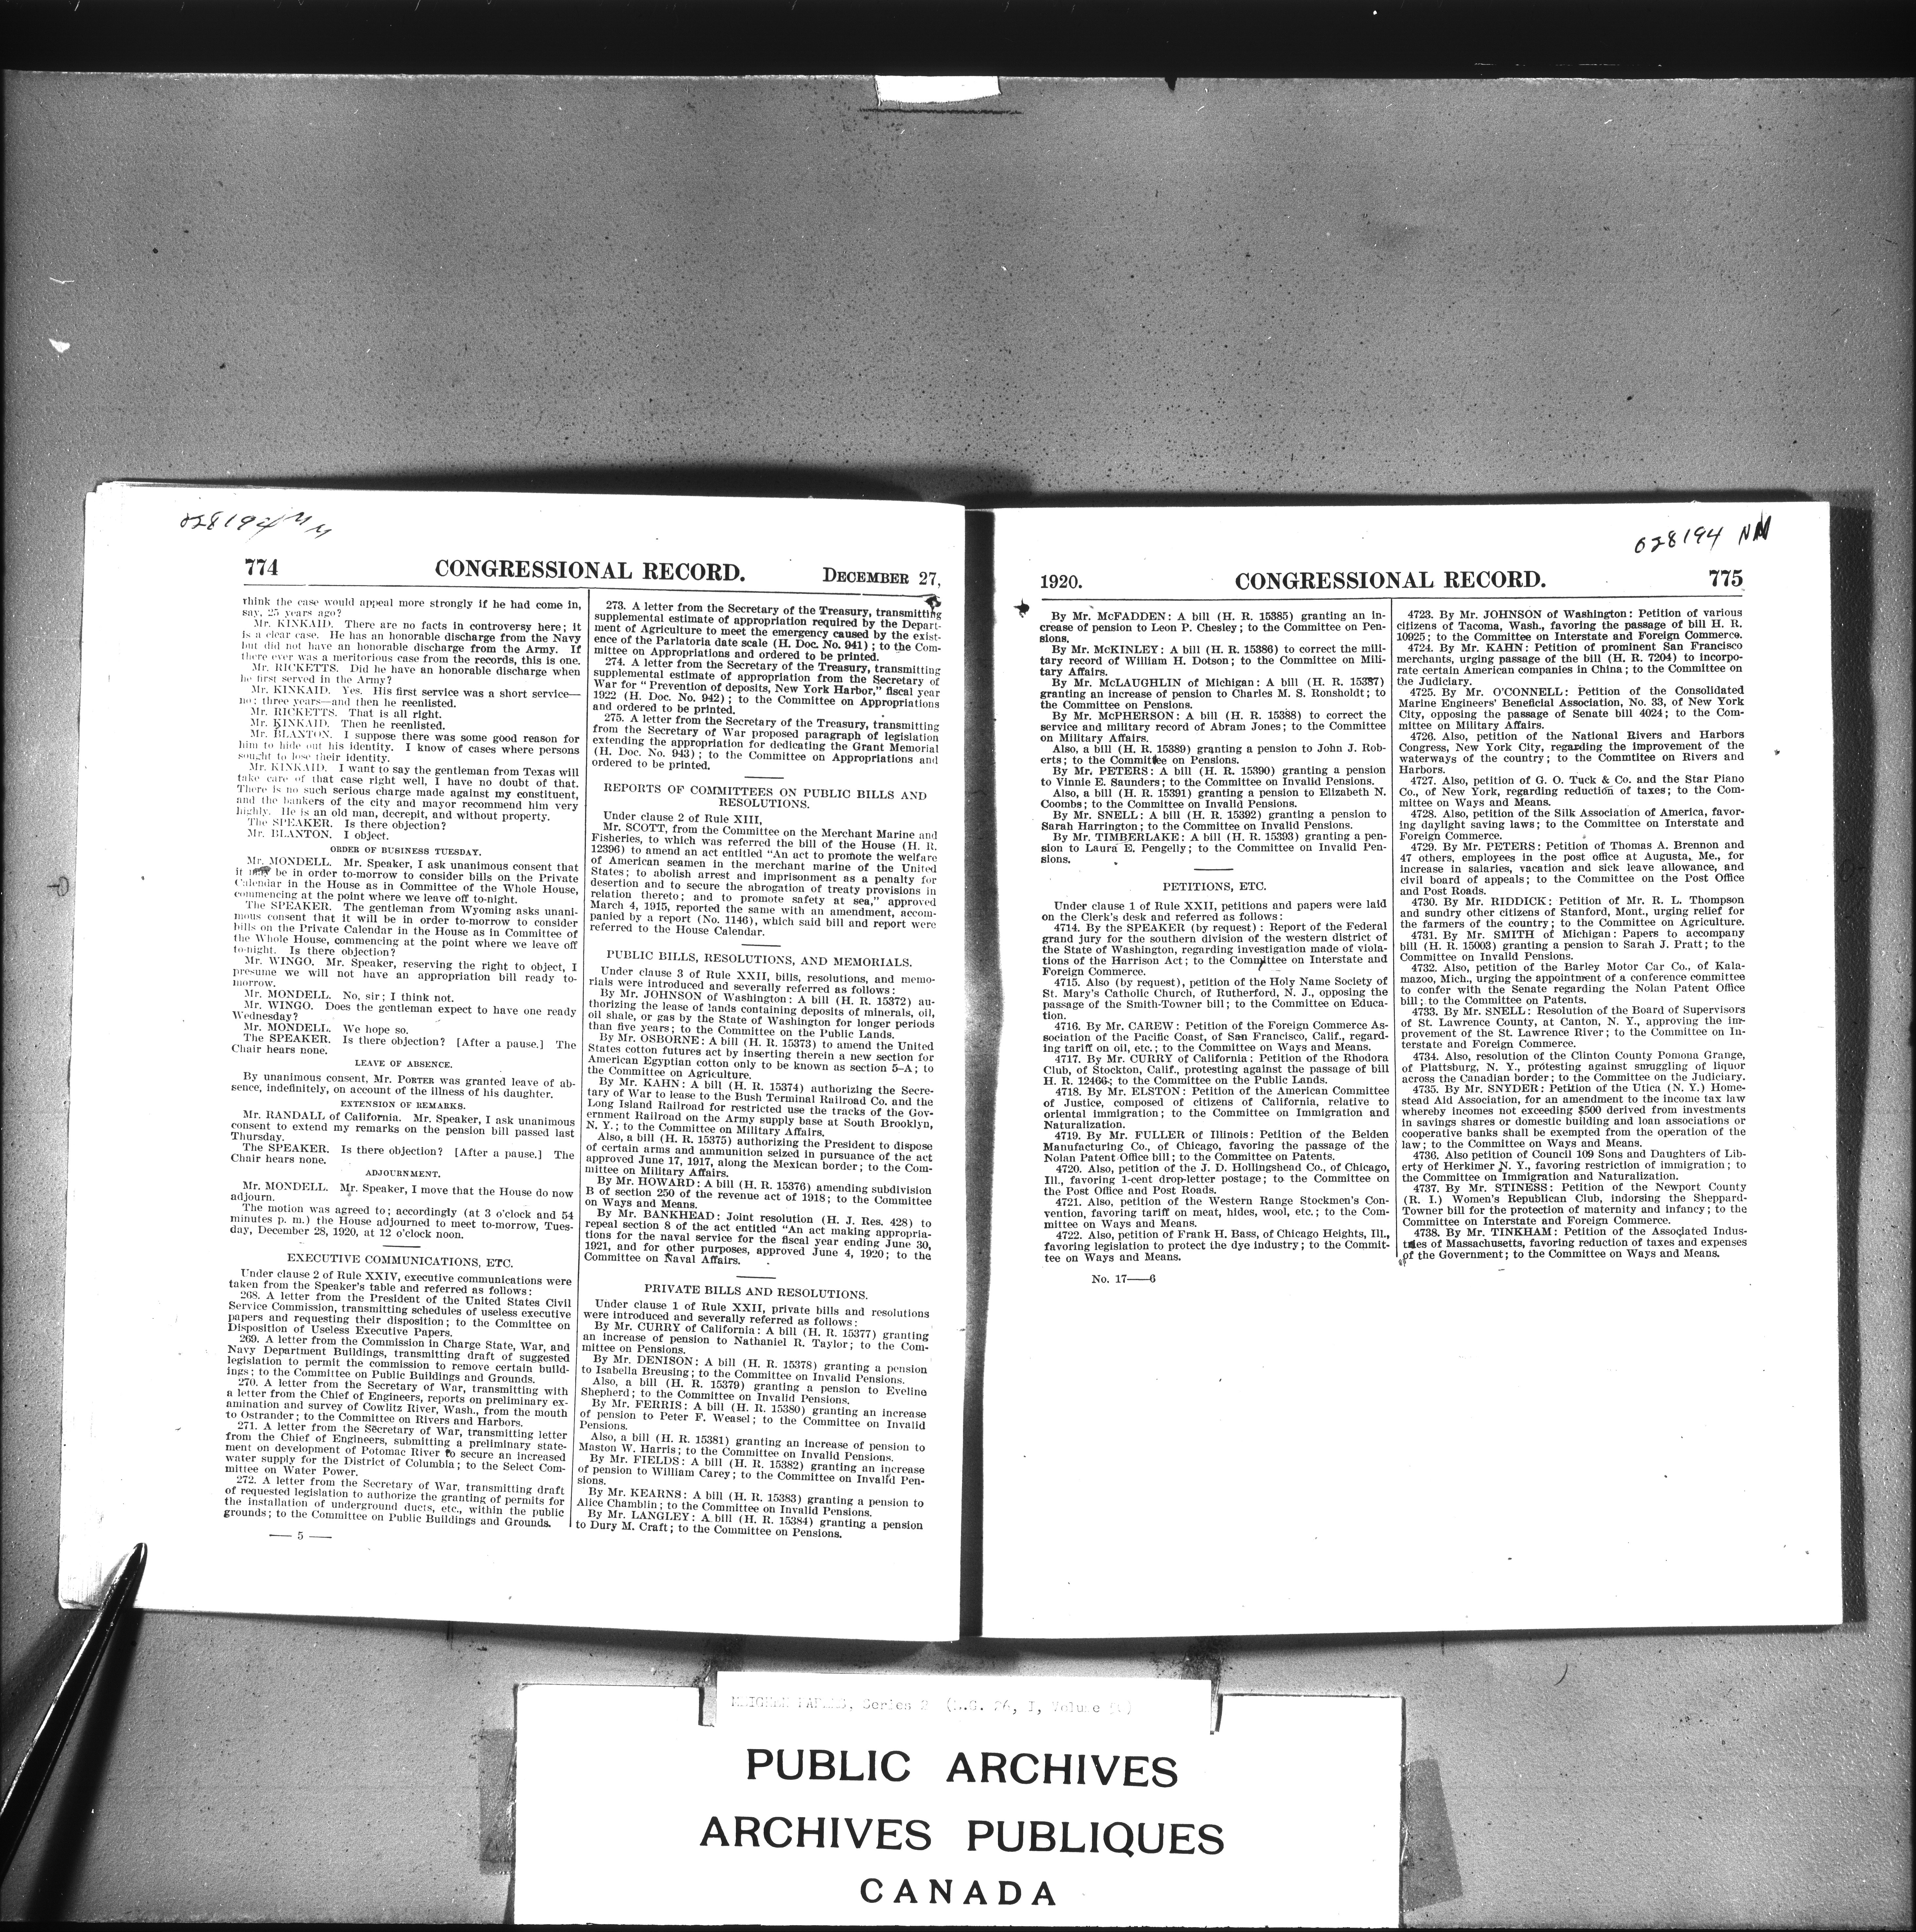 028194 MM
774 CONGRESSIONAL RECORD. DECEMBER 27,
think the case would appeal more strongly if he had come in,
say, 25 years ago?
Mr. KINKAID. There are no facts in controversy here; it
is a clear case. He has an honorable discharge from the Navy
but did not have an honorable discharge from the Army. If
there ever was a meritorious case from the records, this is one.
Mr. RICKETTS. Did he have an honorable discharge when
he first served in the Army?
Mr. KINKAID. Yes. His first service was a short service—
no; three years—and then he reenlisted.
Mr. RICKETTS. That is all right.
Mr. KINKAID. Then he reenlisted.
Mr. BLANTON. I suppose there was some good reason for
him to hide out his identity. I know of cases where persons
sought to lose their identity.
Mr. KINKAID. I want to say the gentleman from Texas will
take care of that case right well, I have no doubt of that.
There is no such serious charge made against my constituent,
and the bankers of the city and mayor recommend him very
highly. He is an old man, decrepit, and without property.
The SPEAKER. Is there objection?
Mr. BLANTON. I object.
ORDER OF BUSINESS TUESDAY.
Mr. MONDELL. Mr. Speaker, I ask unanimous consent that
it may be in order to-morrow to consider bills on the Private
Calendar in the House as in Committee of the Whole House,
commencing at the point where we leave off to-night.
The SPEAKER. The gentleman from Wyoming asks unani-
mous consent that it will be in order to-morrow to consider
bills on the Private Calendar in the House as in Committee of
the Whole House, commencing at the point where we leave off
to-night. Is there objection?
Mr. WINGO. Mr. Speaker, reserving the right to object, I
presume we will not have an appropriation bill ready to-
morrow.
Mr. MONDELL. No, sir; I think not.
Mr. WINGO. Does the gentleman expect to have one ready
Wednesday?
Mr. MONDELL. We hope so.
The SPEAKER. Is there objection? [After a pause.] The
Chair hears none.
LEAVE OF ABSENCE.
By unanimous consent, Mr. PORTER was granted leave of ab-
sence, indefinitely, on account of the illness of his daughter.
EXTENSION OF REMARKS.
Mr. RANDALL of California. Mr. Speaker, I ask unanimous
consent to extend my remarks on the pension bill passed last
Thursday.
The SPEAKER. Is there objection? [After a pause.] The
Chair hears none.
ADJOURNMENT.
Mr. MONDELL. Mr. Speaker, I move that the House do now
adjourn.
The motion was agreed to; accordingly (at 3 o'clock and 54
minutes p. m.) the House adjourned to meet to-morrow, Tues-
day, December 28, 1920, at 12 o'clock noon.
EXECUTIVE COMMUNICATIONS, ETC.
Under clause 2 of Rule XXIV, executive communications were
taken from the Speaker's table and referred as follows:
268. A letter from the President of the United States Civil
Service Commission, transmitting schedules of useless executive
papers and requesting their disposition; to the Committee on
Disposition of Useless Executive Papers.
269. A letter from the Commission in Charge State, War, and
Navy Department Buildings, transmitting draft of suggested
legislation to permit the commission to remove certain build-
ings; to the Committee on Public Buildings and Grounds.
270. A letter from the Secretary of War, transmitting with
a letter from the Chief of Engineers, reports on preliminary ex-
amination and survey of Cowlitz River, Wash., from the mouth
to Ostrander; to the Committee on Rivers and Harbors.
271. A letter from the Secretary of War, transmitting letter
from the Chief of Engineers, submitting a preliminary state-
ment on development of Potomac River to secure an increased
water supply for the District of Columbia; to the Select Com-
mittee on Water Power.
272. A letter from the Secretary of War, transmitting draft
of requested legislation to authorize the granting of permits for
the installation of underground ducts, etc., within the public
grounds; to the Committee on Public Buildings and Grounds.
— 5 —
273. A letter from the Secretary of the Treasury, transmitting
supplemental estimate of appropriation required by the Depart-
ment of Agriculture to meet the emergency caused by the exist-
ence of the Parlatoria date scale (H. Doc. No. 941); to the Com-
mittee on Appropriations and ordered to be printed.
274. A letter from the Secretary of the Treasury, transmitting
supplemental estimate of appropriation from the Secretary of
War for "Prevention of deposits, New York Harbor," fiscal year
1922 (H. Doc. No. 942); to the Committee on Appropriations
and ordered to be printed.
275. A letter from the Secretary of the Treasury, transmitting
from the Secretary of War proposed paragraph of legislation
extending the appropriation for dedicating the Grant Memorial
(H. Doc. No. 943); to the Committee on Appropriations and
ordered to be printed.
REPORTS OF COMMITTEES ON PUBLIC BILLS AND
RESOLUTIONS.
Under clause 2 of Rule XIII,
Mr. SCOTT, from the Committee on the Merchant Marine and
Fisheries, to which was referred the bill of the House (H. R.
12396) to amend an act entitled "An act to promote the welfare
of American seamen in the merchant marine of the United
States; to abolish arrest and imprisonment as a penalty for
desertion and to secure the abrogation of treaty provisions in
relation thereto; and to promote safety at sea," approved
March 4, 1915, reported the same with an amendment, accom-
panied by a report (No. 1146), which said bill and report were
referred to the House Calendar.
PUBLIC BILLS, RESOLUTIONS, AND MEMORIALS.
Under clause 3 of Rule XXII, bills, resolutions, and memo-
rials were introduced and severally referred as follows:
By Mr. JOHNSON of Washington: A bill (H. R. 15372) au-
thorizing the lease of lands containing deposits of minerals, oil,
oil shale, or gas by the State of Washington for longer periods
than five years; to the Committee on the Public Lands.
By Mr. OSBORNE: A bill (H. R. 15373) to amend the United
States cotton futures act by inserting therein a new section for
American Egyptian cotton only to be known as section 5-A; to
the Committee on Agriculture.
By Mr. KAHN: A bill (H. R. 15374) authorizing the Secre-
tary of War to lease to the Bush Terminal Railroad Co. and the
Long Island Railroad for restricted use the tracks of the Gov-
ernment Railroad on the Army supply base at South Brooklyn,
N. Y.; to the Committee on Military Affairs.
Also, a bill (H. R. 15375) authorizing the President to dispose
of certain arms and ammunition seized in pursuance of the act
approved June 17, 1917, along the Mexican border; to the Com-
mittee on Military Affairs.
By Mr. HOWARD: A bill (H. R. 15376) amending subdivision
B of section 250 of the revenue act of 1918; to the Committee
on Ways and Means.
By Mr. BANKHEAD: Joint resolution (H. J. Res. 428) to
repeal section 8 of the act entitled "An act making appropria-
tions for the naval service for the fiscal year ending June 30,
1921, and for other purposes, approved June 4, 1920; to the
Committee on Naval Affairs.
PRIVATE BILLS AND RESOLUTIONS.
Under clause 1 of Rule XXII, private bills and resolutions
were introduced and severally referred as follows:
By Mr. CURRY of California: A bill (H. R. 15377) granting
an increase of pension to Nathaniel R. Taylor; to the Com-
mittee on Pensions.
By Mr. DENISON: A bill (H. R. 15378) granting a pension
to Isabella Breusing; to the Committee on Invalid Pensions.
Also, a bill (H. R. 15379) granting a pension to Eveline
Shepherd; to the Committee on Invalid Pensions.
By Mr. FERRIS: A bill (H. R. 15380) granting an increase
of pension to Peter F. Weasel; to the Committee on Invalid
Pensions.
Also, a bill (H. R. 15381) granting an increase of pension to
Maston W. Harris; to the Committee on Invalid Pensions.
By Mr. FIELDS: A bill (H. R. 15382) granting an increase
of pension to William Carey; to the Committee on Invalid Pen-
sions.
By Mr. KEARNS: A bill (H. R. 15383) granting a pension to
Alice Chamblin; to the Committee on Invalid Pensions.
By Mr. LANGLEY: A bill (H. R. 15384) granting a pension
to Dury M. Craft; to the Committee on Pensions.
028194 NN
1920. CONGRESSIONAL RECORD. 775
By Mr. McFADDEN: A bill (H. R. 15385) granting an in-
crease of pension to Leon P. Chesley; to the Committee on Pen-
sions.
By Mr. McKINLEY: A bill (H. R. 15386) to correct the mili-
tary record of William H. Dotson; to the Committee on Mili-
tary Affairs.
By Mr. McLAUGHLIN of Michigan: A bill (H. R. 15387)
granting an increase of pension to Charles M. S. Ronsholdt; to
the Committee on Pensions.
By Mr. McPHERSON: A bill (H. R. 15388) to correct the
service and military record of Abram Jones; to the Committee
on Military Affairs.
Also, a bill (H. R. 15389) granting a pension to John J. Rob-
erts; to the Committee on Pensions.
By Mr. PETERS: A bill (H. R. 15390) granting a pension
to Vinnie E. Saunders; to the Committee on Invalid Pensions.
Also, a bill (H. R. 15391) granting a pension to Elizabeth N.
Coombs; to the Committee on Invalid Pensions.
By Mr. SNELL: A bill (H. R. 15392) granting a pension to
Sarah Harrington; to the Committee on Invalid Pensions.
By Mr. TIMBERLAKE: A bill (H. R. 15393) granting a pen-
sion to Laura E. Pengelly; to the Committee on Invalid Pen-
sions.
PETITIONS, ETC.
Under clause 1 of Rule XXII, petitions and papers were laid
on the Clerk's desk and referred as follows:
4714. By the SPEAKER (by request): Report of the Federal
grand jury for the southern division of the western district of
the State of Washington, regarding investigation made of viola-
tions of the Harrison Act; to the Committee on Interstate and
Foreign Commerce.
4715. Also (by request), petition of the Holy Name Society of
St. Mary's Catholic Church, of Rutherford, N. J., opposing the
passage of the Smith-Towner bill; to the Committee on Educa-
tion.
4716. By Mr. CAREW: Petition of the Foreign Commerce As-
sociation of the Pacific Coast, of San Francisco, Calif., regard-
ing tariff on oil, etc.; to the Committee on Ways and Means.
4717. By Mr. CURRY of California: Petition of the Rhodora
Club, of Stockton, Calif., protesting against the passage of bill
H. R. 12466; to the Committee on the Public Lands.
4718. By Mr. ELSTON: Petition of the American Committee
of Justice, composed of citizens of California, relative to
oriental immigration; to the Committee on Immigration and
Naturalization.
4719. By Mr. FULLER of Illinois: Petition of the Belden
Manufacturing Co., of Chicago, favoring the passage of the
Nolan Patent Office bill; to the Committee on Patents.
4720. Also, petition of the J. D. Hollingshead Co., of Chicago,
Ill., favoring 1-cent drop-letter postage; to the Committee on
the Post Office and Post Roads.
4721. Also, petition of the Western Range Stockmen's Con-
vention, favoring tariff on meat, hides, wool, etc.; to the Com-
mittee on Ways and Means.
4722. Also, petition of Frank H. Bass, of Chicago Heights, Ill.,
favoring legislation to protect the dye industry; to the Commit-
tee on Ways and Means.
No. 17——6
4723. By Mr. JOHNSON of Washington: Petition of various
citizens of Tacoma, Wash., favoring the passage of bill H. R.
10925; to the Committee on Interstate and Foreign Commerce.
4724. By Mr. KAHN: Petition of prominent San Francisco
merchants, urging passage of the bill (H. R. 7204) to incorpo-
rate certain American companies in China; to the Committee on
the Judiciary.
4725. By Mr. O'CONNELL: Petition of the Consolidated
Marine Engineers' Beneficial Association, No. 33, of New York
City, opposing the passage of Senate bill 4024; to the Com-
mittee on Military Affairs.
4726. Also, petition of the National Rivers and Harbors
Congress, New York City, regarding the improvement of the
waterways of the country; to the Commtitee on Rivers and
Harbors.
4727. Also, petition of G. O. Tuck & Co. and the Star Piano
Co., of New York, regarding reduction of taxes; to the Com-
mittee on Ways and Means.
4728. Also, petition of the Silk Association of America, favor-
ing daylight saving laws; to the Committee on Interstate and
Foreign Commerce.
4729. By Mr. PETERS: Petition of Thomas A. Brennon and
47 others, employees in the post office at Augusta, Me., for
increase in salaries, vacation and sick leave allowance, and
civil board of appeals; to the Committee on the Post Office
and Post Roads.
4730. By Mr. RIDDICK: Petition of Mr. R. L. Thompson
and sundry other citizens of Stanford, Mont., urging relief for
the farmers of the country; to the Committee on Agriculture.
4731. By Mr. SMITH of Michigan: Papers to accompany
bill (H. R. 15003) granting a pension to Sarah J. Pratt; to the
Committee on Invalid Pensions.
4732. Also, petition of the Barley Motor Car Co., of Kala-
mazoo, Mich., urging the appointment of a conference committee
to confer with the Senate regarding the Nolan Patent Office
bill; to the Committee on Patents.
4733. By Mr. SNELL: Resolution of the Board of Supervisors
of St. Lawrence County, at Canton, N. Y., approving the im-
provement of the St. Lawrence River; to the Committee on In-
terstate and Foreign Commerce.
4734. Also, resolution of the Clinton County Pomona Grange,
of Plattsburg, N. Y., protesting against smuggling of liquor
across the Canadian border; to the Committee on the Judiciary.
4735. By Mr. SNYDER: Petition of the Utica (N. Y.) Home-
stead Aid Association, for an amendment to the income tax law
whereby incomes not exceeding $500 derived from investments
in savings shares or domestic building and loan associations or
cooperative banks shall be exempted from the operation of the
law; to the Committee on Ways and Means.
4736. Also, petition of Council 109 Sons and Daughters of Lib-
erty of Herkimer N. Y., favoring restriction of immigration; to
the Committee on Immigration and Naturalization.
4737. By Mr. STINESS: Petition of the Newport County
(R. I.) Women's Republican Club, indorsing the Sheppard-
Towner bill for the protection of maternity and infancy; to the
Committee on Interstate and Foreign Commerce.
4738. By Mr. TINKHAM: Petition of the Associated Indus-
tries of Massachusetts, favoring reduction of taxes and expenses
of the Government; to the Committee on Ways and Means.
MEIGHEN PAPERS, Series 2 (M.G. 26, I, Volume
PUBLIC ARCHIVES
ARCHIVES PUBLIQUES
CANADA